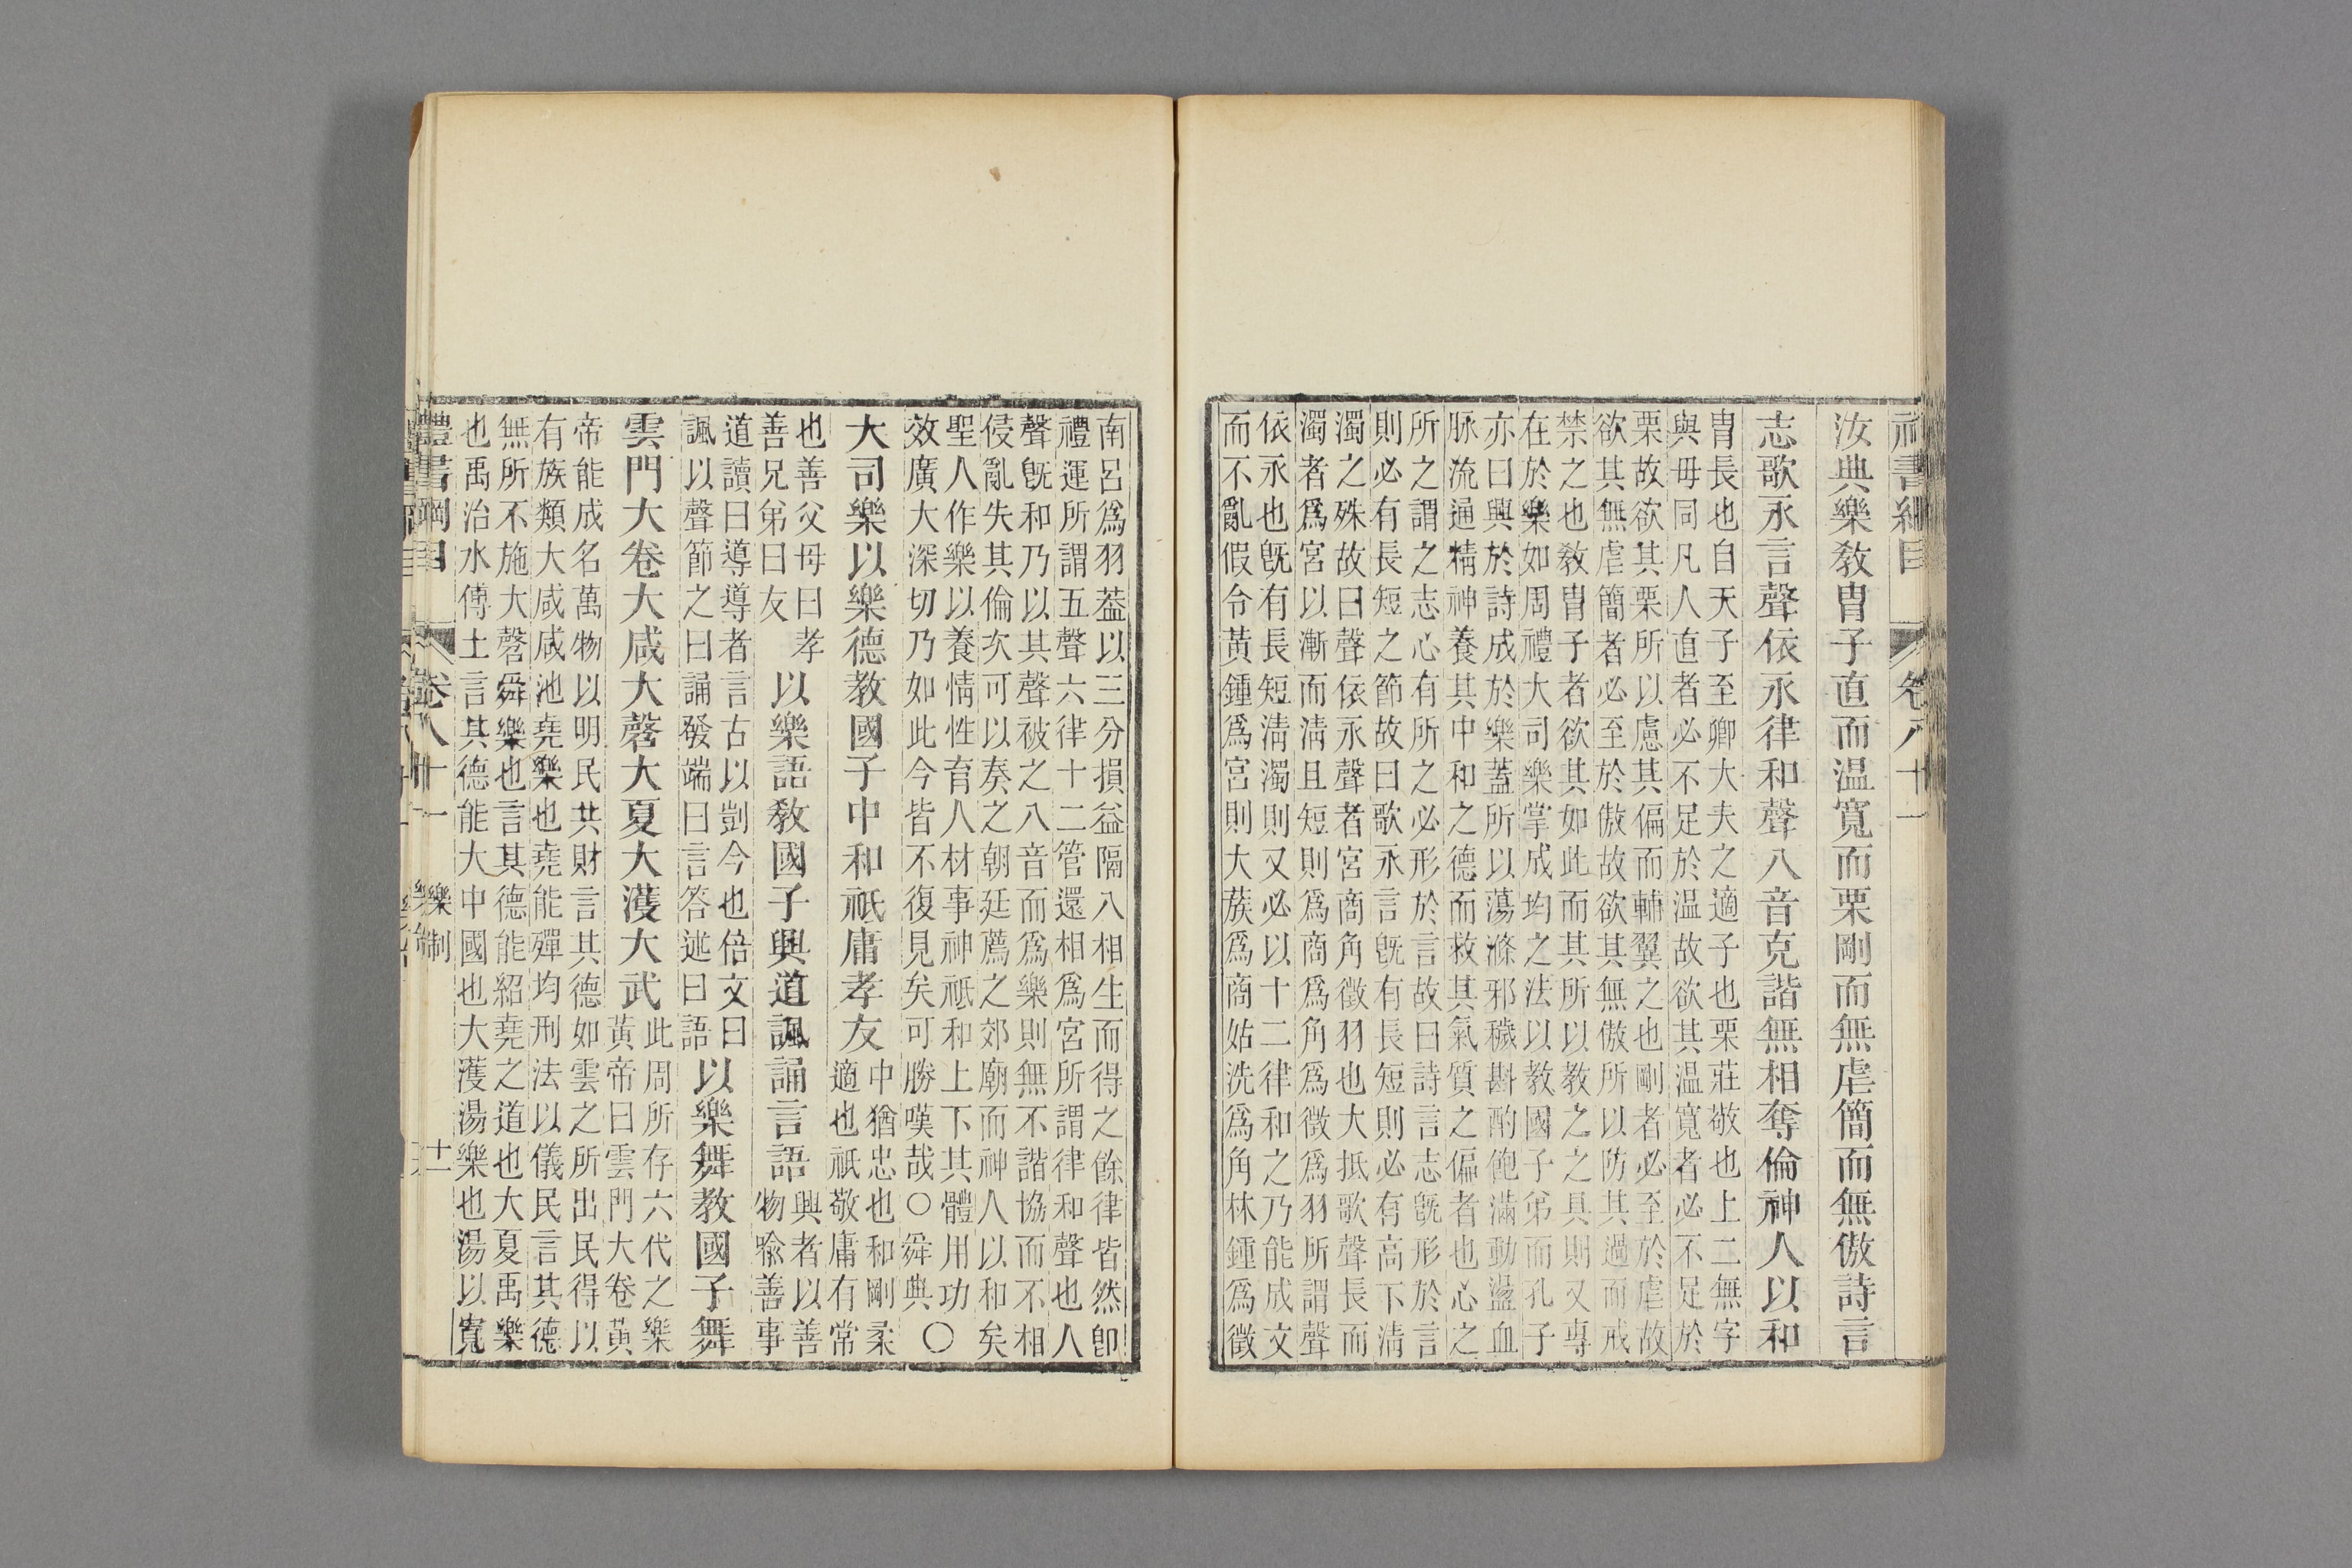 禮書綱目 卷八十一
汝典樂敎冑子直而温寬而栗剛而無虐簡而無傲詩言
志歌永言聲依永律和聲八音克諧無相奪倫神人以和
冑長也自天子至卿大夫之適子也栗莊敬也上二無字
與毋同凡人直者必不足於温故欲其温寬者必不足於
栗故欲其栗所以慮其偏而輔翼之也剛者必至於虐故
欲其無虐簡者必至於傲故欲其無傲所以防其過而戒
禁之也敎冑子者欲其如此而其所以教之之具則又專
在於樂如周禮大司樂掌成均之法以教國子弟而孔子
亦曰興於詩成於樂蓋所以蕩滌邪穢斟酌飽滿動盪血
脉流通精神養其中和之德而救其氣質之偏者也心之
所之謂之志心有所之必形於言故曰詩言志旣形於言
則必有長短之節故曰歌永言旣有長短則必有高下淸
濁之殊故曰聲依永聲者宮商角徵羽也大抵歌聲長而
濁者爲宮以漸而淸且短則爲商爲角爲徵爲羽所謂聲
依永也旣有長短淸濁則又必以十二律和之乃能成文
而不亂假令黃鍾爲宮則大蔟爲商姑洗爲角林鍾爲徵
南呂爲羽葢以三分損益隔八相生而得之餘律皆然卽
禮運所謂五聲六律十二管還相爲宮所謂律和聲也人
聲旣和乃以其聲被之八音而爲樂則無不諧協而不相
侵亂失其倫次可以奏之朝廷薦之郊廟而神人以和矣
聖人作樂以養情性育人材事神祇和上下其體用功
效廣大深切乃如此今皆不復見矣可勝嘆哉○舜典○
大司樂以樂德教國子中和祇庸孝友
中猶忠也和剛柔
適也祇敬庸有常
也善父母曰孝
善兄弟曰友
以樂語教國子興道諷誦言語
興者以善
物喩善事
道讀曰導導者言古以剴今也倍文曰
諷以聲節之曰誦發端曰言答述曰語
以樂舞教國子舞
雲門大卷大咸大磬大夏大濩大武
此周所存六代之樂
黃帝曰雲門大卷黃
帝能成名萬物以明民共財言其德如雲之所出民得以
有族類大咸咸池堯樂也堯能殫均刑法以儀民言其德
無所不施大磬舜樂也言其德能紹堯之道也大夏禹樂
也禹治水傅土言其德能大中國也大濩湯樂也湯以寬
禮書綱目 卷八十一 樂制 十一